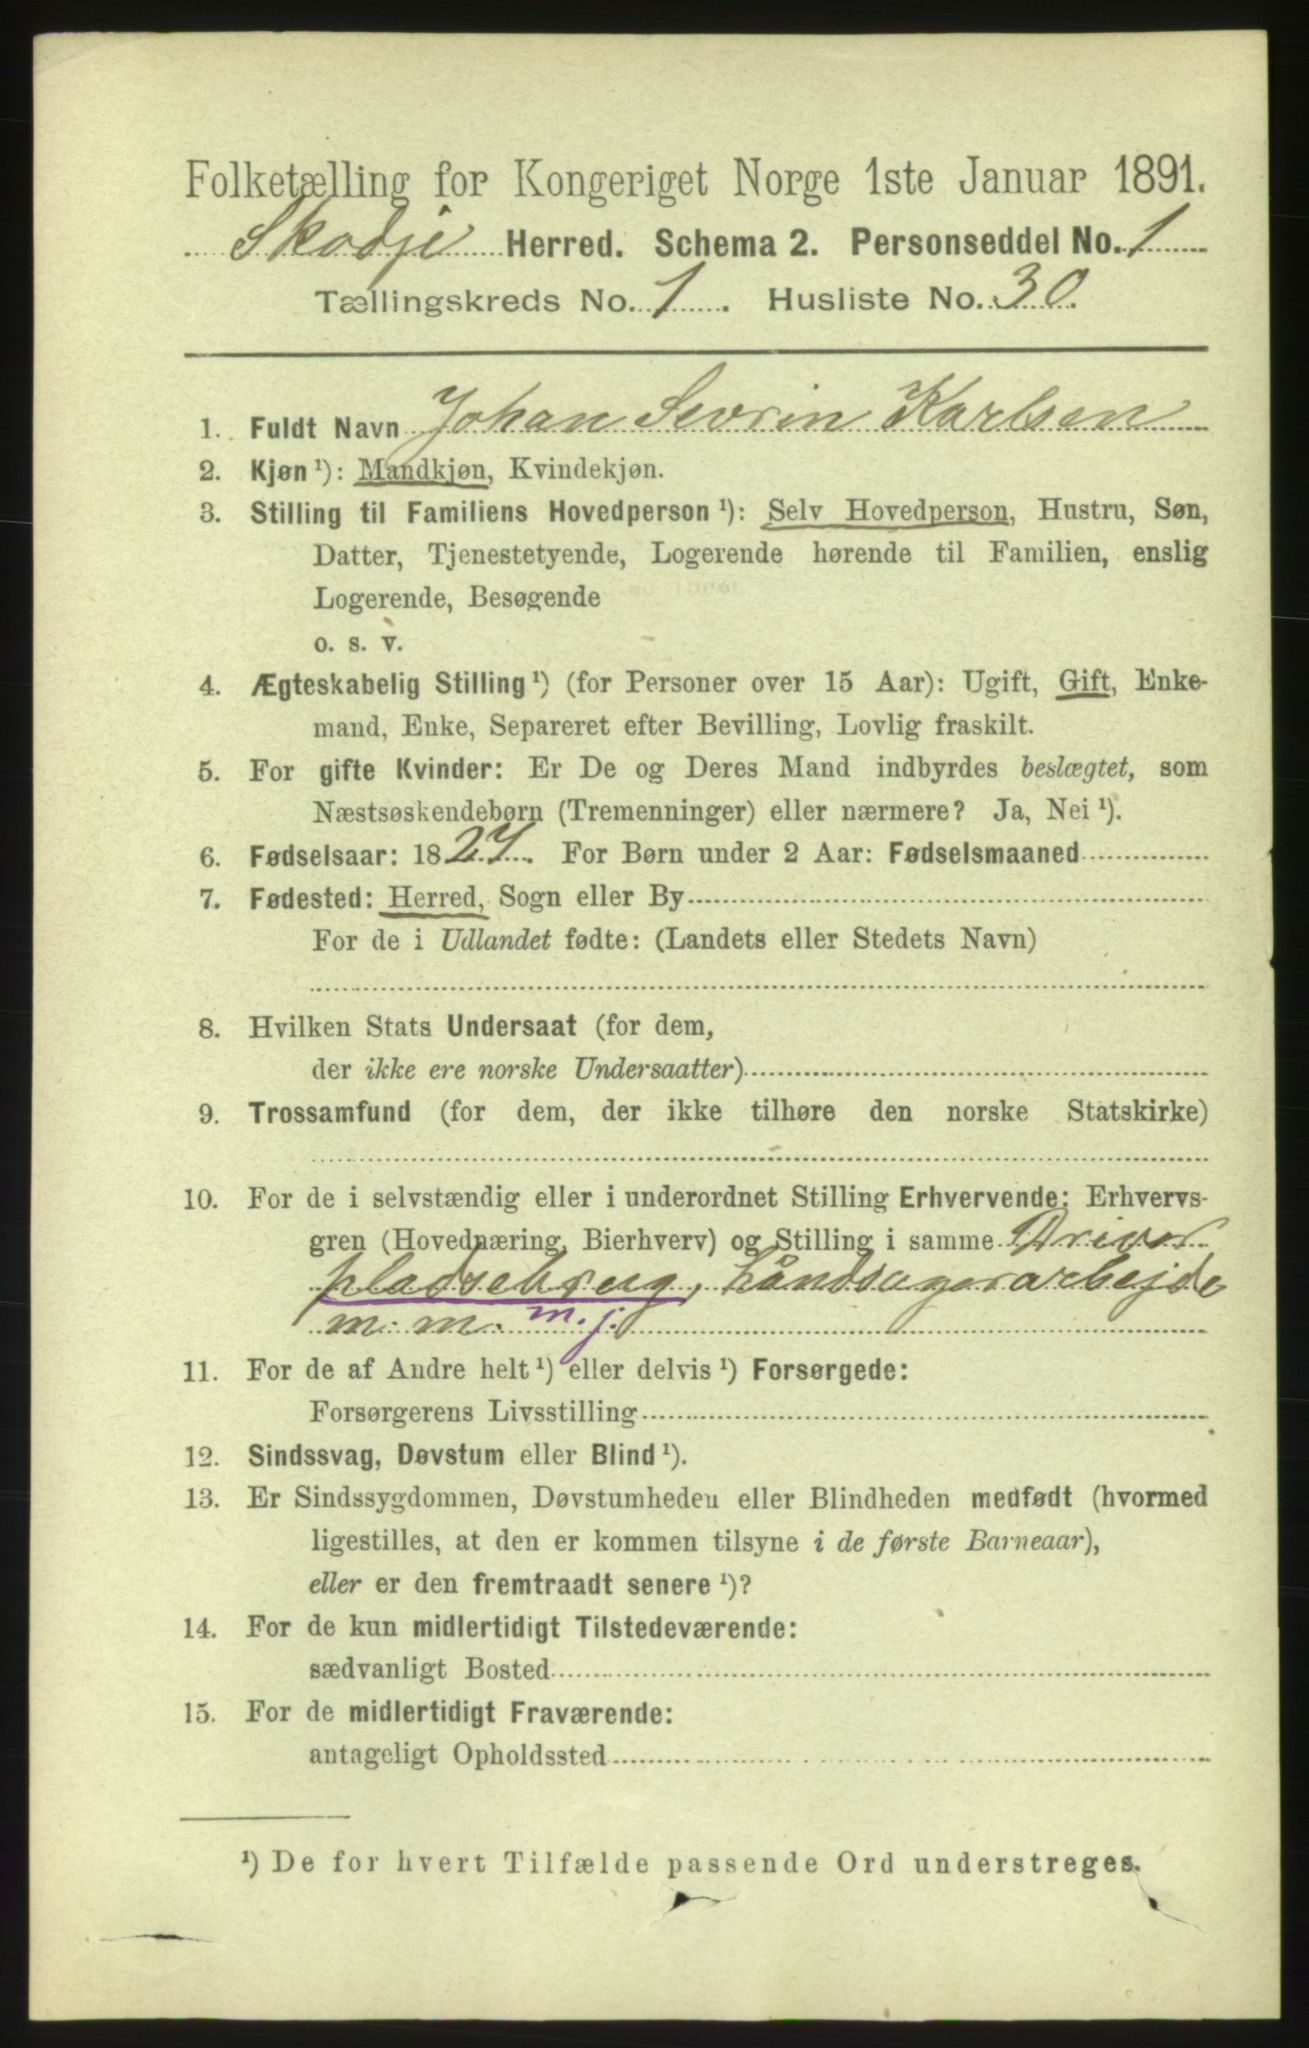 Folketælling for Kongeriget Norge 1ste Januar 1891.
Skodje Herred. Schema 2. Personseddel No. 1
Tællingskreds No. 1. Husliste No. 30.
1. Fuldt Navn Johan Sevrin Karlsen
2. Kjøn ¹): Mandkjøn, Kvindekjøn.
3. Stilling til Familiens Hovedperson ¹): Selv Hovedperson, Hustru, Søn,
Datter, Tjenestetyende, Logerende hørende til Familien, enslig
Logerende, Besøgende
o. s. v.
4. Ægteskabelig Stilling ¹) (for Personer over 15 Aar): Ugift, Gift, Enke-
mand, Enke, Separeret efter Bevilling, Lovlig fraskilt.
5. For gifte Kvinder: Er De og Deres Mand indbyrdes beslægtet, som
Næstsøskendebørn (Tremenninger) eller nærmere? Ja, Nei ¹).
6. Fødselsaar: 1827. For Børn under 2 Aar: Fødselsmaaned
7. Fødested: Herred, Sogn eller By
For de i Udlandet fødte: (Landets eller Stedets Navn)
8. Hvilken Stats Undersaat (for dem,
der ikke ere norske Undersaatter)
9. Trossamfund (for dem, der ikke tilhøre den norske Statskirke)
10. For de i selvstændig eller i underordnet Stilling Erhvervende: Erhvervs-
gren (Hovednæring, Bierhverv) og Stilling i samme Driver
pladsebrug, håndsagerarbejde
m. m. m. j.
11. For de af Andre helt ¹) eller delvis ¹) Forsørgede:
Forsørgerens Livsstilling
12. Sindssvag, Døvstum eller Blind ¹).
13. Er Sindssygdommen, Døvstumheden eller Blindheden medfødt (hvormed
ligestilles, at den er kommen tilsyne i de første Barneaar),
eller er den fremtraadt senere ¹)?
14. For de kun midlertidigt Tilstedeværende:
sædvanligt Bosted
15. For de midlertidigt Fraværende:
antageligt Opholdssted
¹) De for hvert Tilfælde passende Ord understreges.